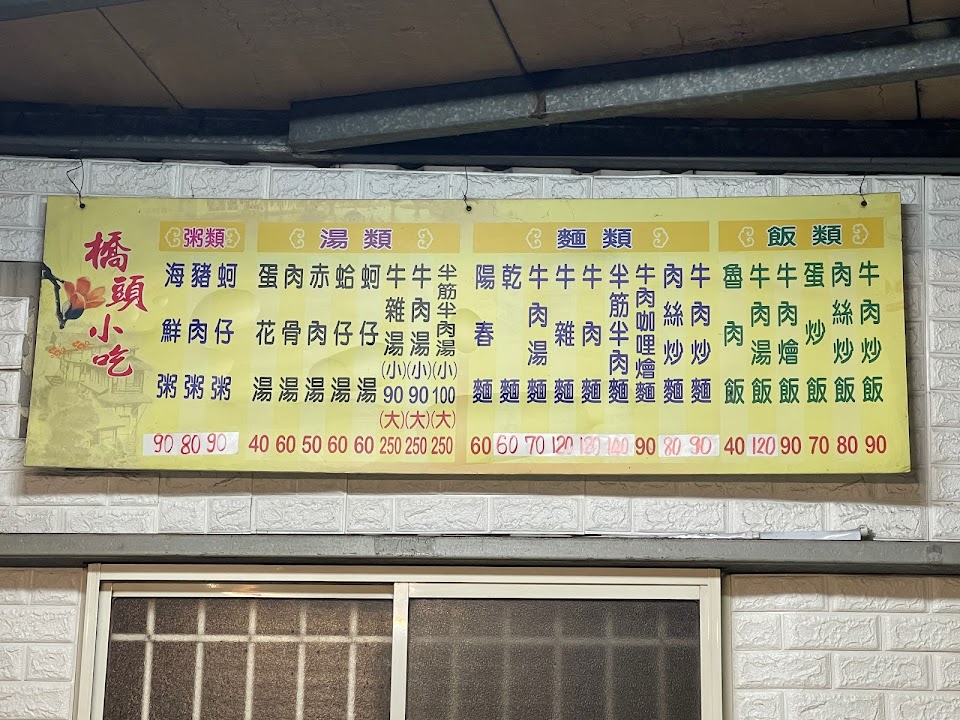 橋頭小吃
粥類
海鮮粥 90
豬肉粥 80
蚵仔粥 90
湯類
蛋花湯 40
肉骨湯 60
赤肉湯 50
蛤仔湯 60
蚵仔湯 60
牛雜湯(小)90(大)250
牛肉湯(小)90(大)250
半筋半肉湯(小)100(大)250
麵類
陽春麵 60
乾麵 60
牛肉湯麵 70
牛雜麵 120
牛肉麵 120
半筋半肉麵 140
牛肉咖哩燴麵 90
肉絲炒麵 80
牛肉炒麵 90
飯類
魯肉飯 40
牛肉湯飯 120
牛肉燴飯 90
蛋炒飯 70
肉絲炒飯 80
牛肉炒飯 90